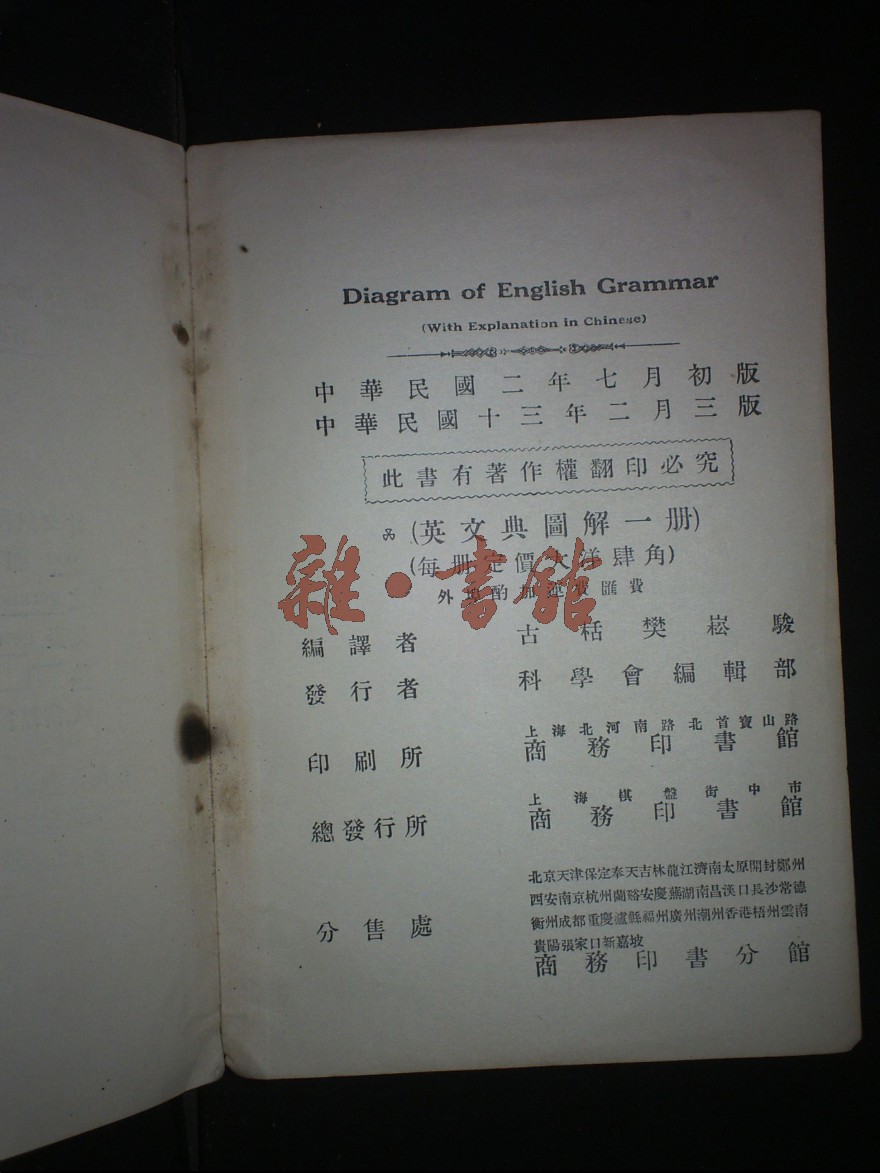 Diagram of English Grammar
(With Explanation in Chinese)
中華民國二年七月初版
中華民國十三年二月三版
此書有著作權翻印必究
(英文典圖解一册)
(每册定價大洋肆角)
外埠酌加運費匯費
雜·書館
編譯者 古栝樊崧駿
發行者 科學會編輯部
上海北河南路北首寶山路
印刷所 商務印書館
上海棋盤街中市
總發行所 商務印書館
北京天津保定奉天吉林龍江濟南太原開封鄭州
西安南京杭州蘭谿安慶蕪湖南昌漢口長沙常德
衡州成都重慶瀘縣福州廣州潮州香港梧州雲南
貴陽張家口新嘉坡
分售處 商務印書分館